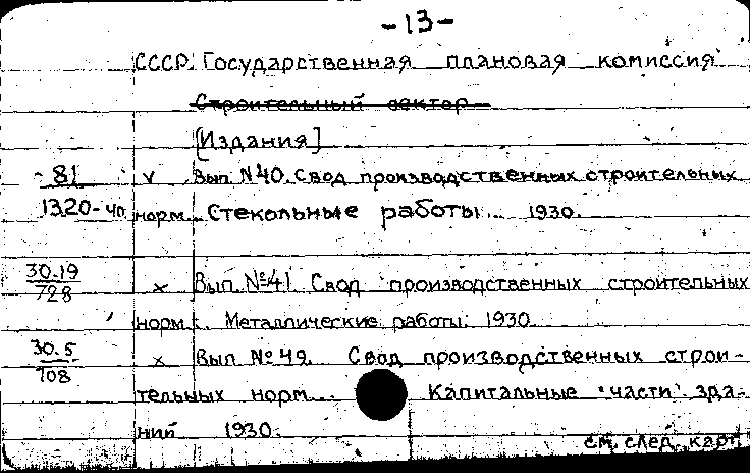 -13-
СССР. Государственная плановая комиссия
Строительный сектор
[Издания]
81 v Вып. №40. Свод производственных строительных
1320-40 норм. Стекольные работы. 1930.
30.19
728 x Вып. №41. Свод производственных строительных
норм. Металлические работы. 1930.
30.5
708 x Вып. №49. Свод производственных строи-
тельных норм. Капитальные части зда-
ний 1930.
см. след. карт.